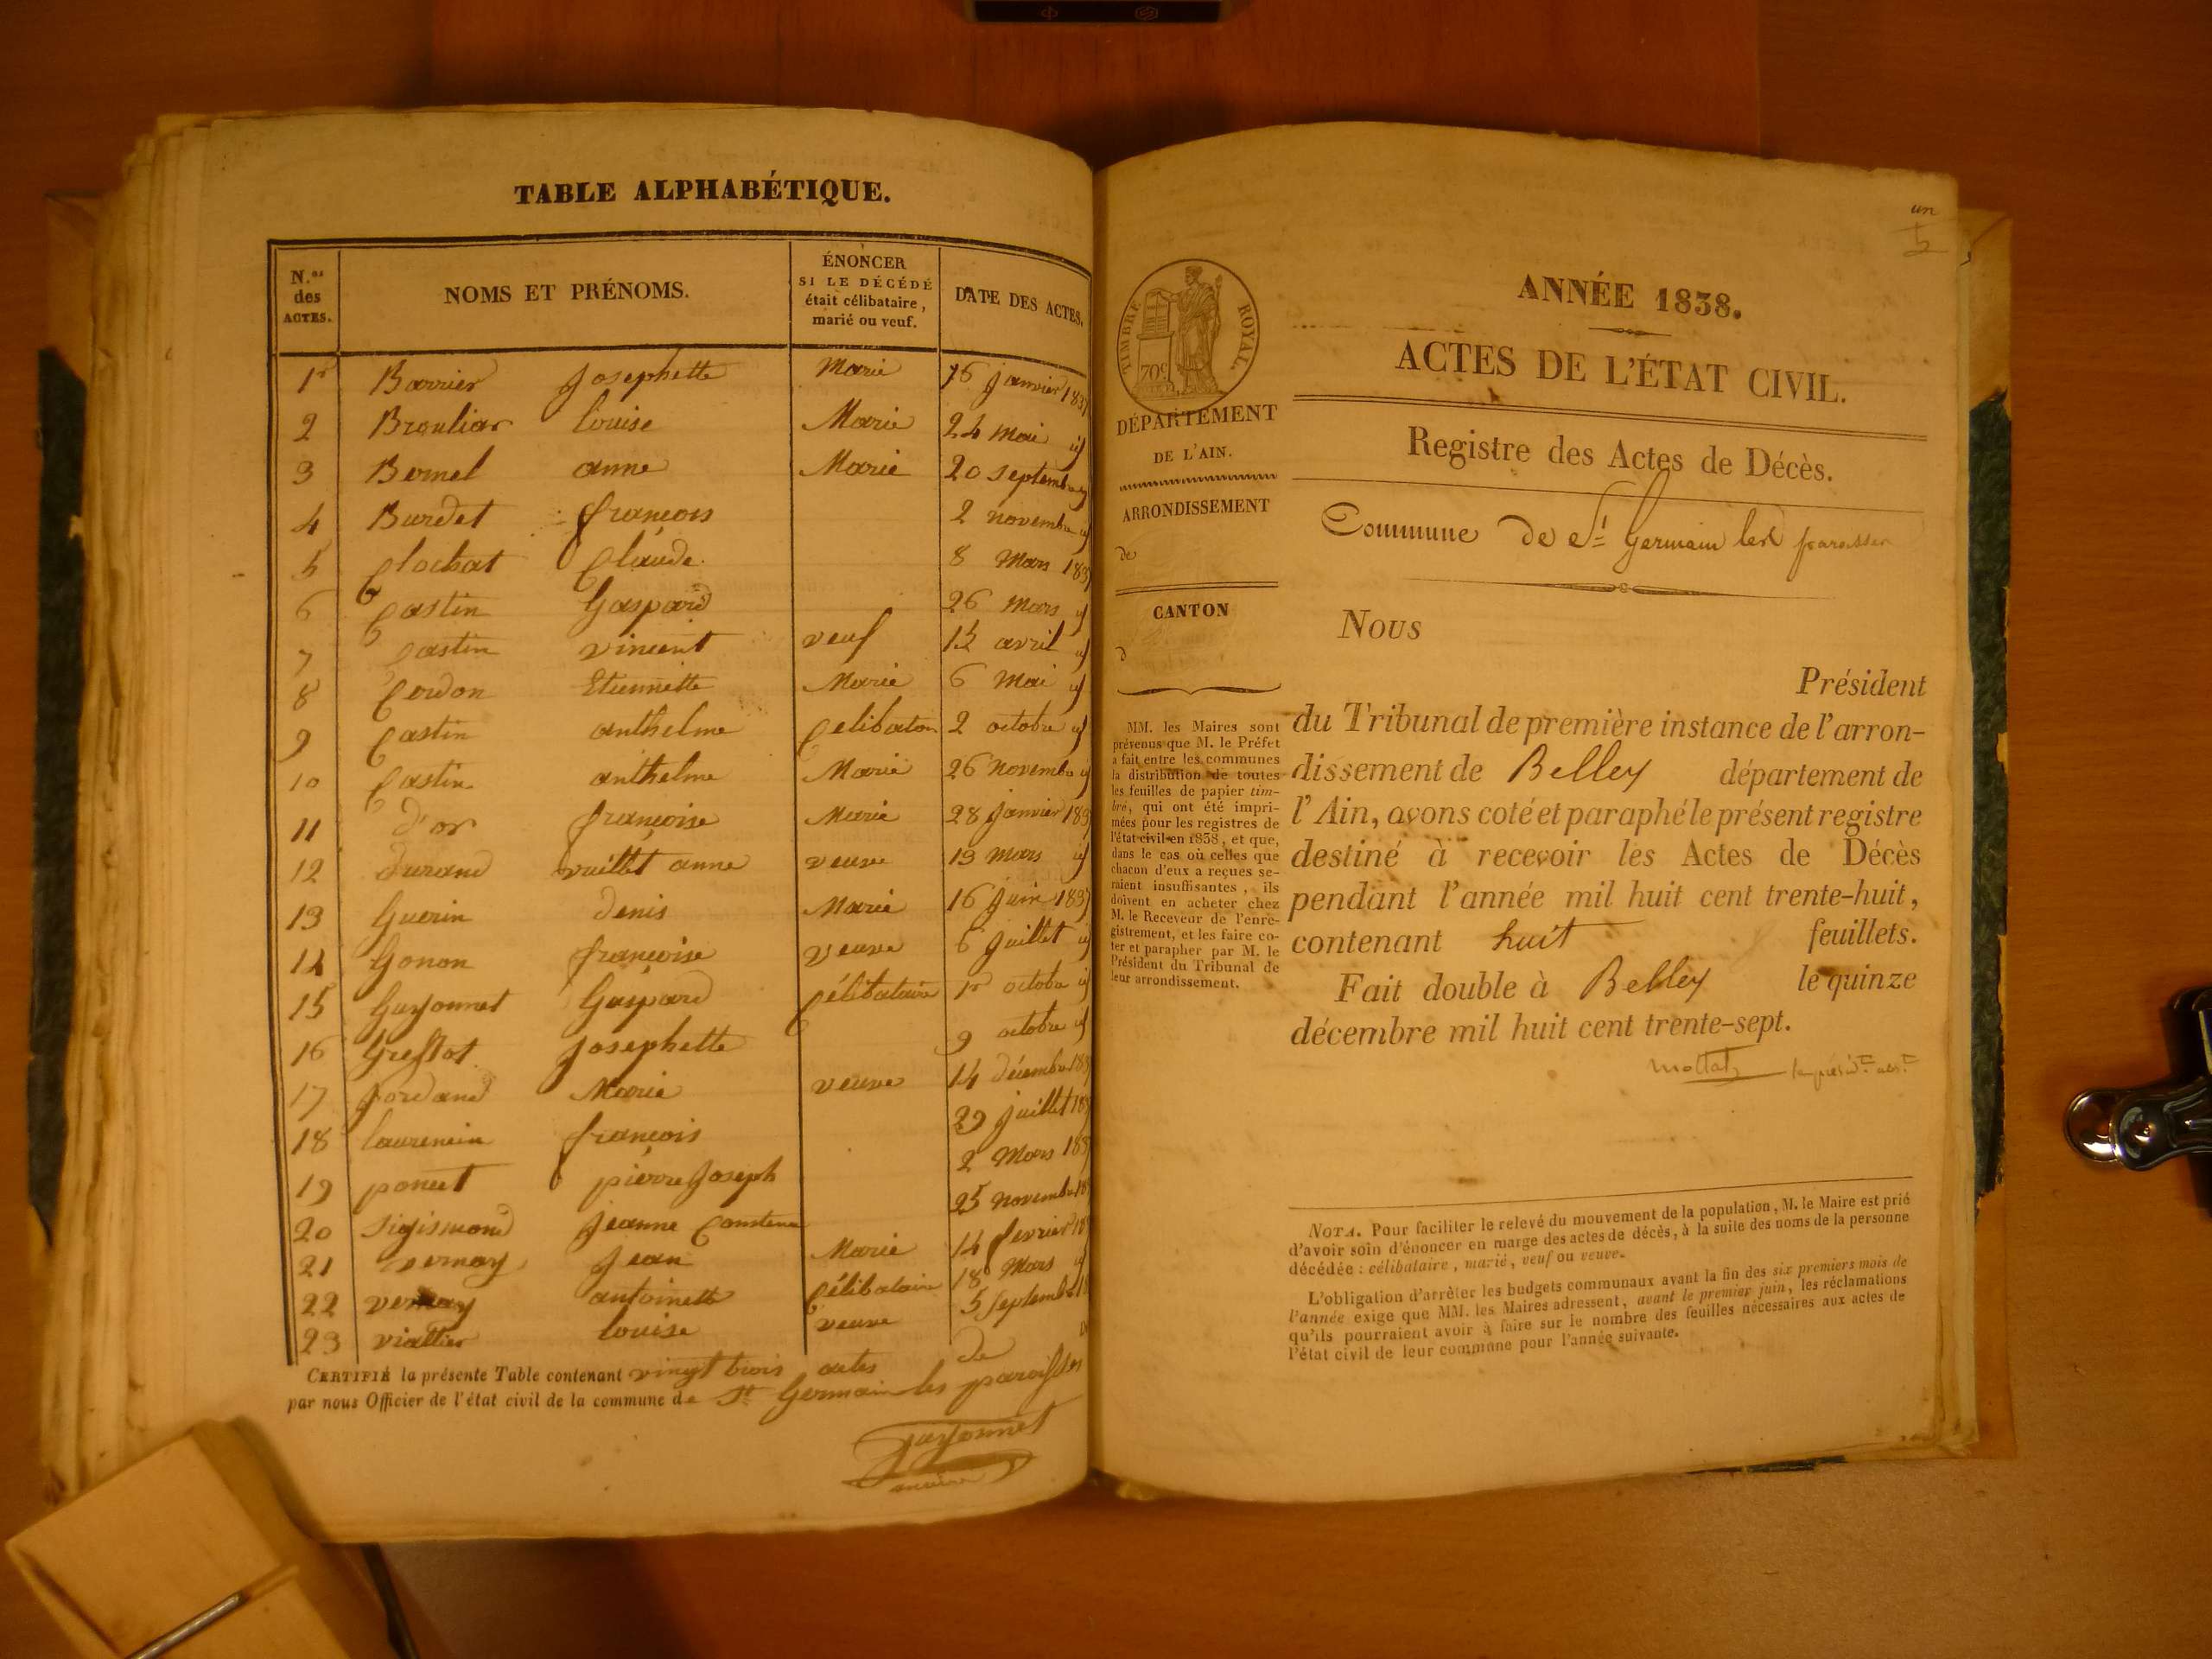 TABLE ALPHABÉTIQUE.
N.os des ACTES.
NOMS ET PRÉNOMS.
ÉNONCER
SI LE DÉCÉDÉ
était célibataire,
marié ou veuf.
DATE DES ACTES.
1r Barrier Josephette Marié 16 janvier 1837
2 Brouliar louise Marié 24 mai id
3 Bernel anne Marié 20 septembre
4 Burdet françois 2 novembre id
5 Clochat Claude 8 Mars 1837
6 Castin Gaspard 26 mars id
7 Castin vincent veuf 13 avril id
8 Cordon Etiennette Marié 6 Mai id
9 Castin anthelme Celibaton 2 octobre id
10 Castin anthelme Marié 26 Novembre id
11 d'or françoise Marié 28 janvier 1837
12 durand vuillet anne veuve 13 mars id
13 Guerin denis Marié 16 juin 1837
14 Gonon françoise veuve 6 juillet id
15 Guyonnet Gaspard Célibataire 1r octobre id
16 Greffot Josephette 9 octobre id
17 Jordand Marie veuve 14 décembre 183
18 laurencin françois 29 juillet 18
19 poncet pierre Joseph 2 Mars 183
20 Sigismond Jeanne 25 novembre 18
21 vernay Jean Marié 14 fevrier 18
22 vernay antoinette Célibataire 18 Mars id
23 viallier louise veuve 5 septembre
CERTIFIÉ la présente Table contenant vingt trois actes de
par nous Officier de l'état civil de la commune de St Germain les paroisses
guyonnet
maire
un
TIMBRE ROYAL
70c
DÉPARTEMENT
DE L'AIN.
ARRONDISSEMENT
de
CANTON
d
MM. les Maires sont
prévenus que M. le Préfet
a fait entre les communes
la distribution de toutes
les feuilles de papier tim-
bré, qui ont été impri-
mées pour les registres de
l'état civil en 1838, et que,
dans le cas où celles que
chacun d'eux a reçues se-
raient insuffisantes, ils
doivent en acheter chez
M. le Receveur de l'enre-
gistrement, et les faire co-
ter et parapher par M. le
Président du Tribunal de
leur arrondissement.
ANNÉE 1838.
ACTES DE L'ÉTAT CIVIL.
Registre des Actes de Décès.
Commune de St Germain les paroisses
Nous
Président
du Tribunal de première instance de l'arron-
dissement de Belley département de
l'Ain, avons coté et paraphé le présent registre
destiné à recevoir les Actes de Décès
pendant l'année mil huit cent trente-huit,
contenant huit feuillets.
Fait double à Belley le quinze
décembre mil huit cent trente-sept.
NOTA. Pour faciliter le relevé du mouvement de la population, M. le Maire est prié
d'avoir soin d'énoncer en marge des actes de décès, à la suite des noms de la personne
décédée : célibataire, marié, veuf ou veuve.
L'obligation d'arrêter les budgets communaux avant la fin des six premiers mois de
l'année exige que MM. les Maires adressent, avant le premier juin, les réclamations
qu'ils pourraient avoir à faire sur le nombre des feuilles nécessaires aux actes de
l'état civil de leur commune pour l'année suivante.